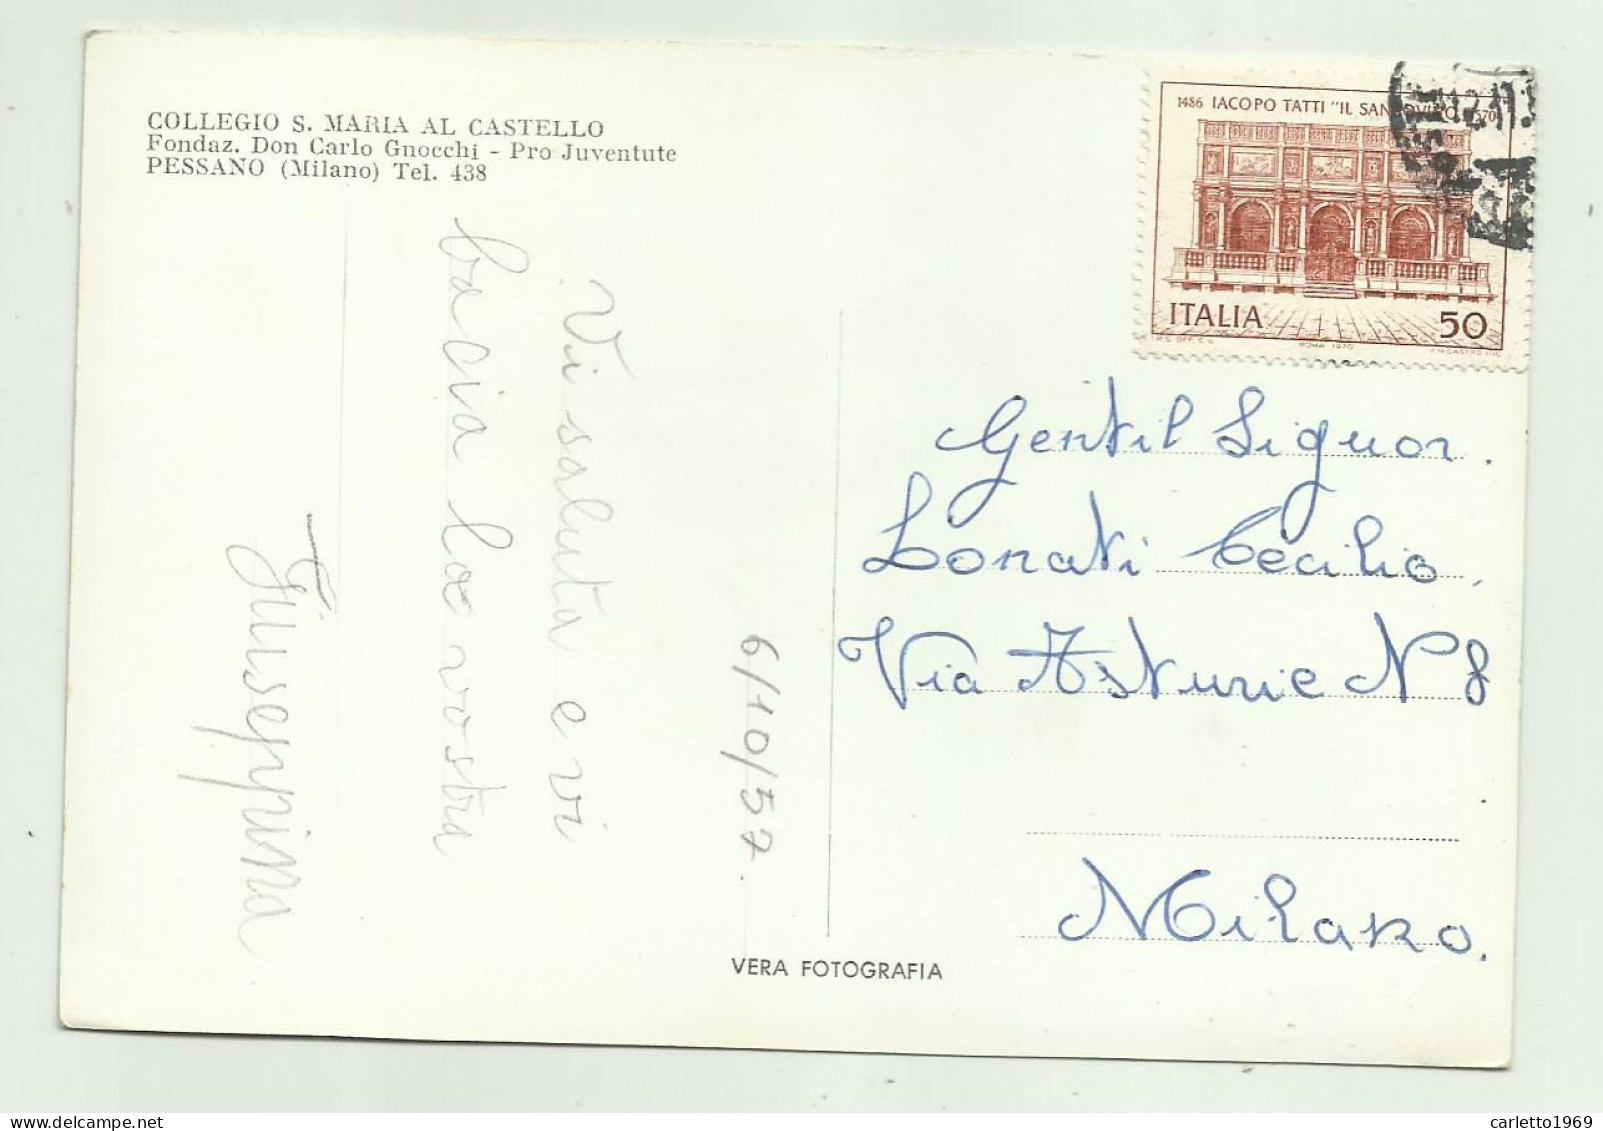 COLLEGIO S. MARIA AL CASTELLO
Fondaz. Don Carlo Gnocchi - Pro Juventute
PESSANO (Milano) Tel. 438
Vi saluta e vi
bacia la vostra
Giuseppina
6/10/57
1486 IACOPO TATTI "IL SANSOVINO" 1570
ITALIA 50
I.P.S. OFF. C.V. ROMA 1970
Gentil Signor.
Lonati Cecilio,
Via Asturie N 8
Milano.
VERA FOTOGRAFIA
carletto1969
delcampe.net